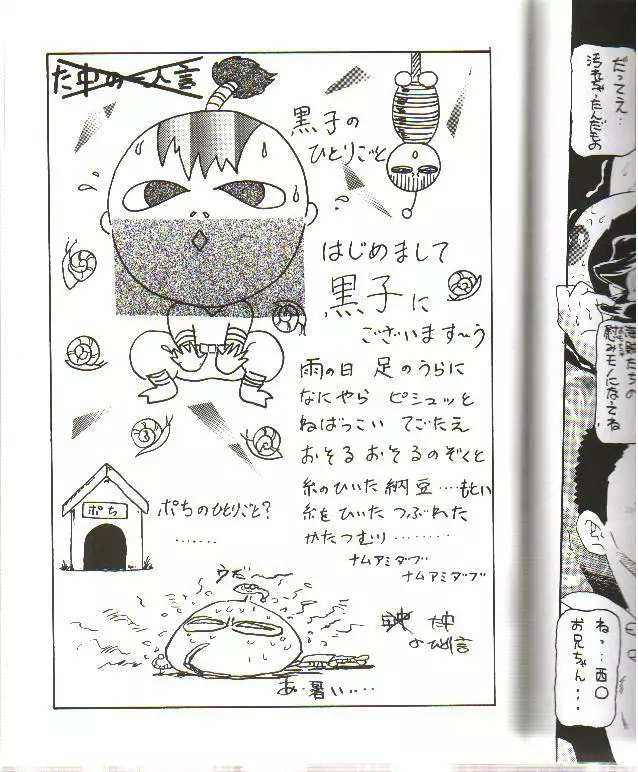 た中の一人言
黒子の
ひとりごと
はじめまして
黒子に
ございます〜う
雨の日 足のうらに
なにやら ピシュッと
ねばっこい てごたえ
おそる おそるのぞくと
糸のひいた 納豆……もとい
糸をひいた つぶれた
かたつむり………
ナムアミダブ
ナムアミダブ
ポち
ポちのひとりごと?
……
うだ〜
た中
のひと言
あ・暑い‥‥
だってえ…
汚れちゃったんだもの
慰みモノになってね
ねっ…西〇
お兄ちゃん…